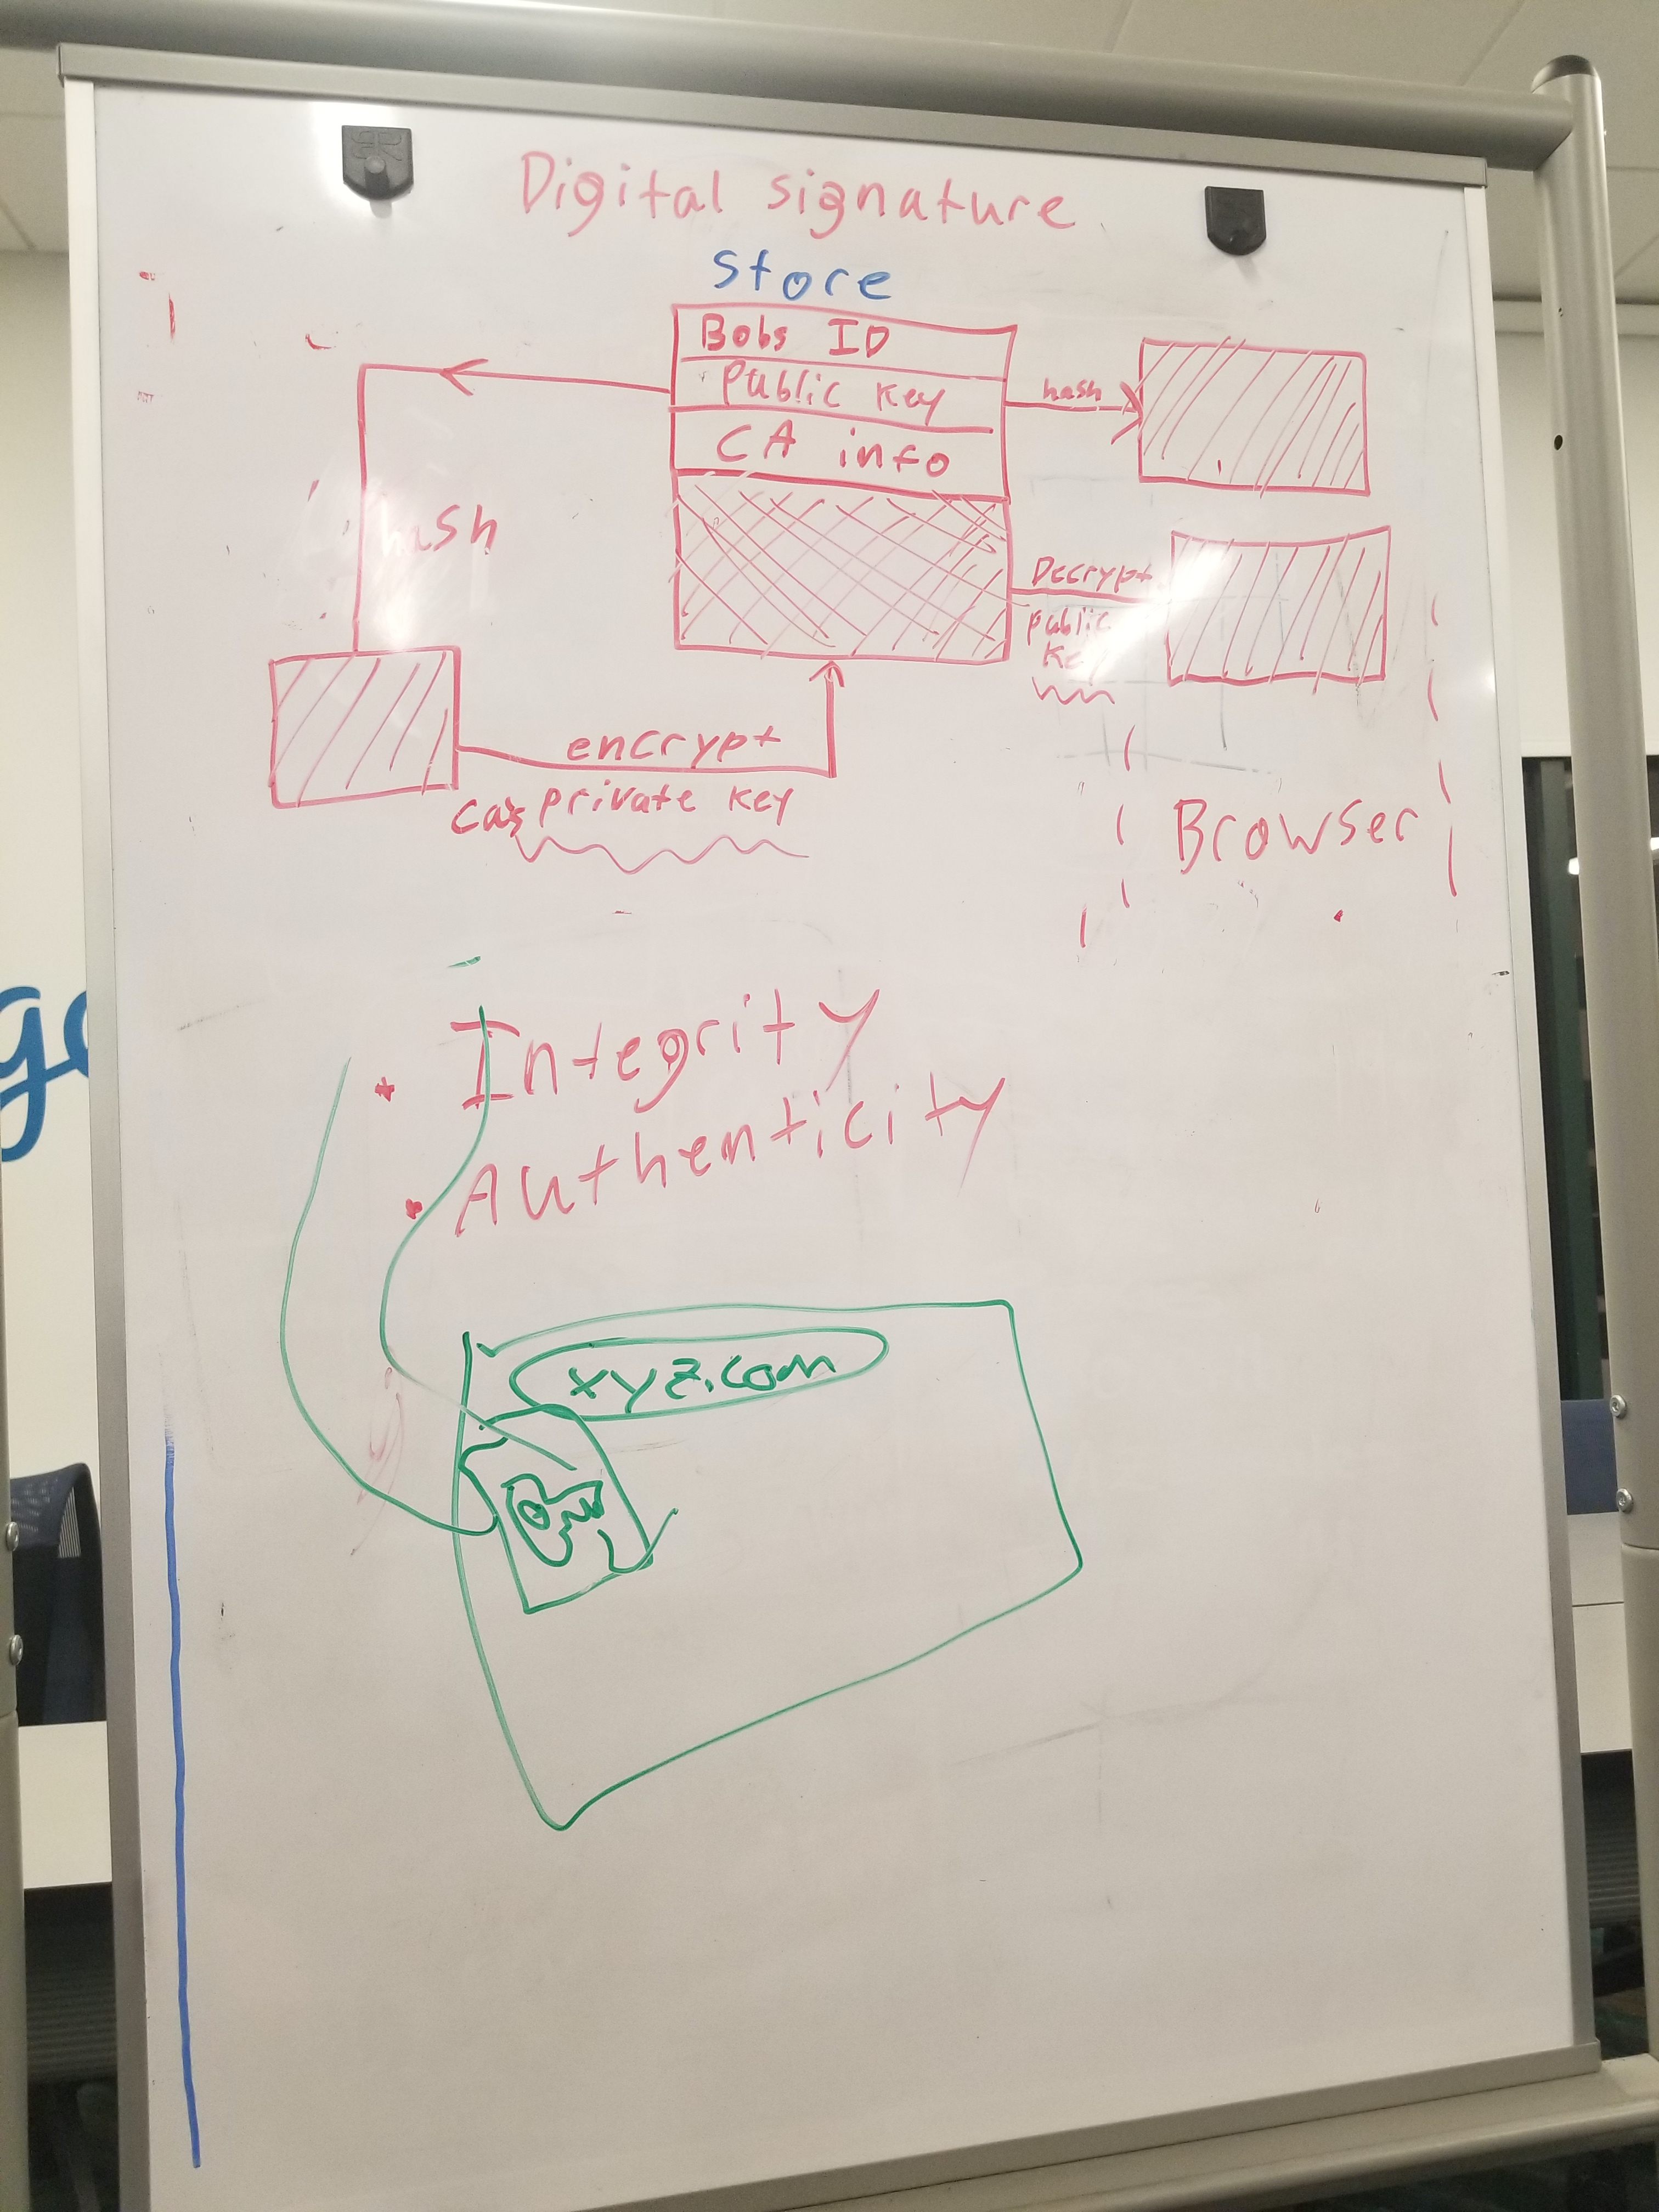 Digital signature
store
Bobs ID
Public Key
CA info
hash
hash
Decrypt
public
Key
encrypt
CA's private key
Browser
• Integrity
• Authenticity
xyz.com